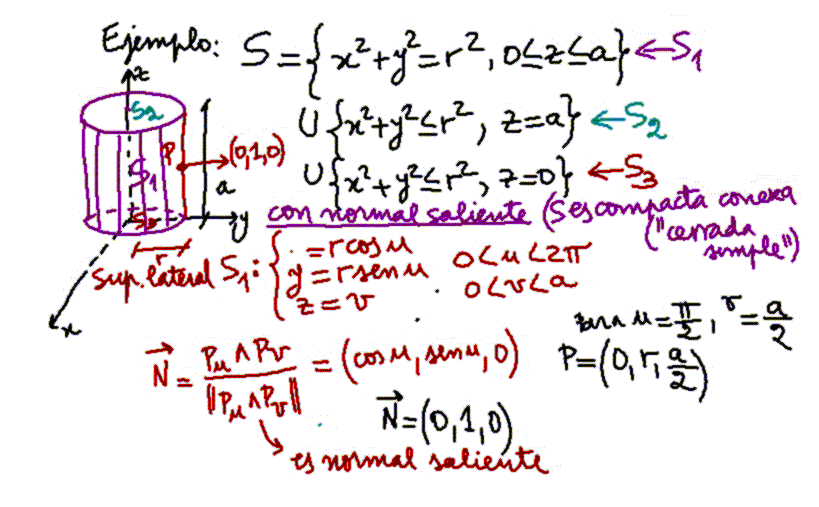 Ejemplo: S = { x² + y² = r², 0 ≤ z ≤ a } ← S₁
∪ { x² + y² ≤ r², z = a } ← S₂
∪ { x² + y² ≤ r², z = 0 } ← S₃
con normal saliente (S es compacta conexa
("cerrada
simple")
z
S₂
P
(0,1,0)
S₁
a
S₃
y
r
x
Sup. lateral S₁: { = r cos u
y = r sen u
z = v
0 < u < 2π
0 < v < a
para u = π/2, v = a/2
P = (0, r, a/2)
N⃗ = Pu ∧ Pv / ‖Pu ∧ Pv‖ = (cos u, sen u, 0)
N⃗ = (0,1,0)
es normal saliente